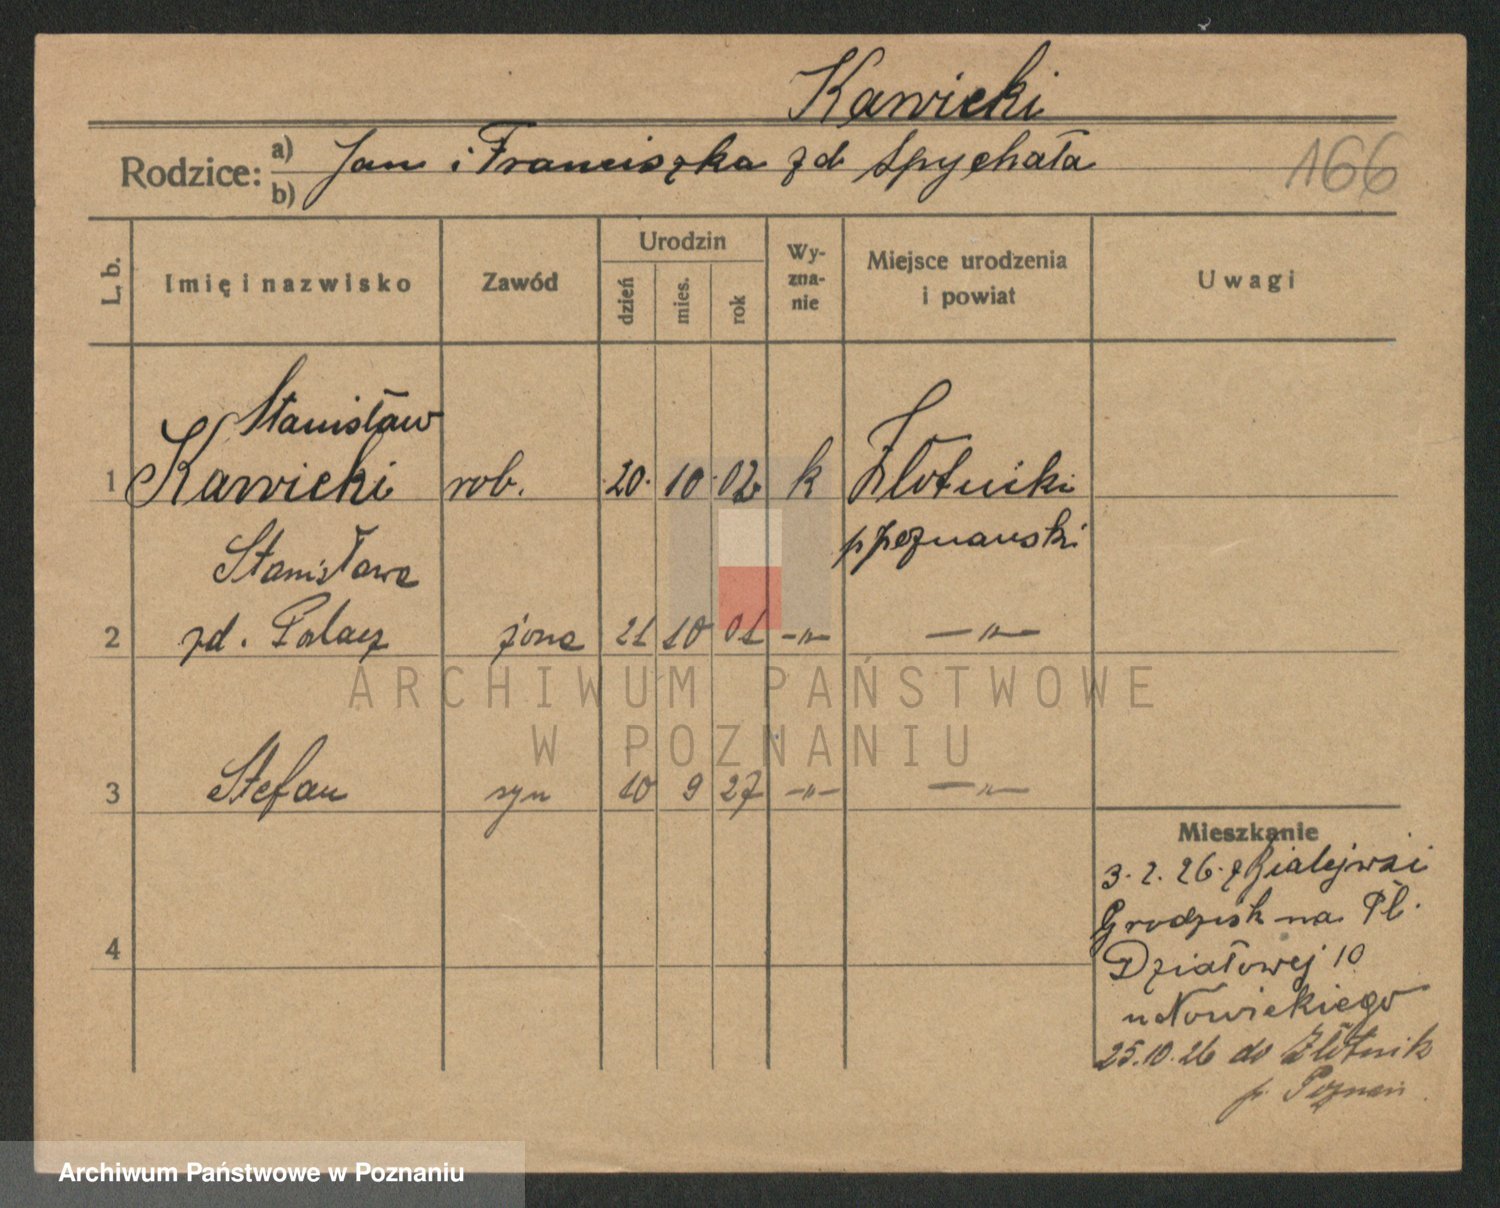 Kawicki
Rodzice: a) b) Jan i Franciszka zd Spychała
166
L. b. Imię i nazwisko Zawód Urodzin dzień mies. rok Wy-zna-nie Miejsce urodzenia i powiat Uwagi
Stanisław
1 Kawicki rob. 20. 10. 02 k Złotniki
p Poznański
Stanisława
2 zd. Palacz żona 21 10 01 -„- -„-
3 Stefan syn 10 9 27 -„- -„-
4
Mieszkanie
3. 2. 26. z
Grodzisk na Pl.
Działowej 10
u Nowickiego
25.10.26 do Złotnik
p. Poznań
ARCHIWUM PAŃSTWOWE
W POZNANIU
Archiwum Państwowe w Poznaniu